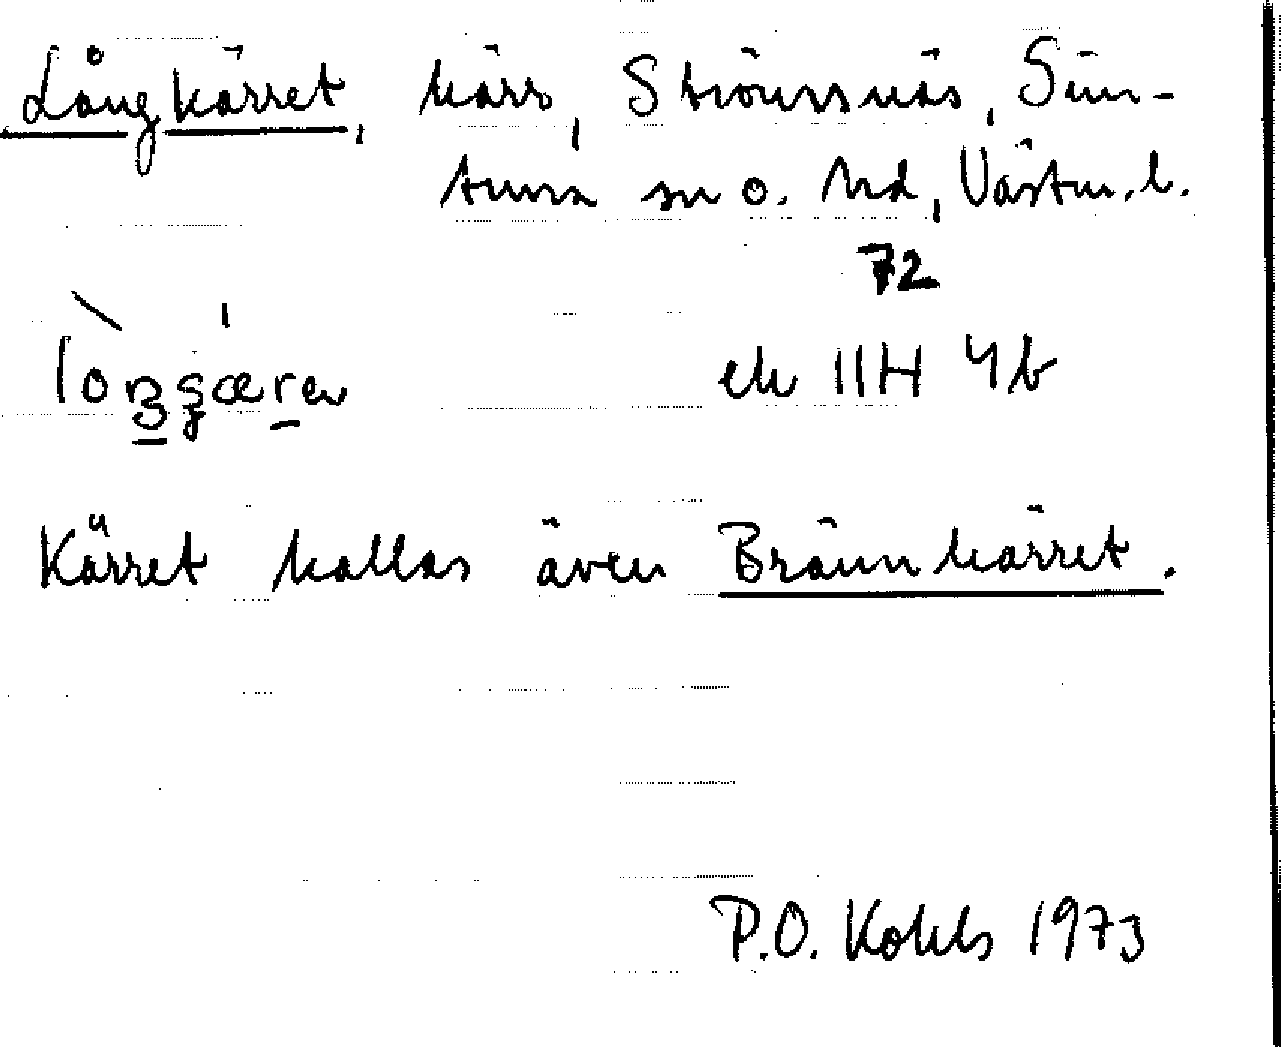 Långkärret, kärr, Strömsnäs, Sim-
tuna sn o. hd, Västm. l.
72
ek 11H 4b
Kärret kallas även Brännkärret.
P.O. Kohls 1973